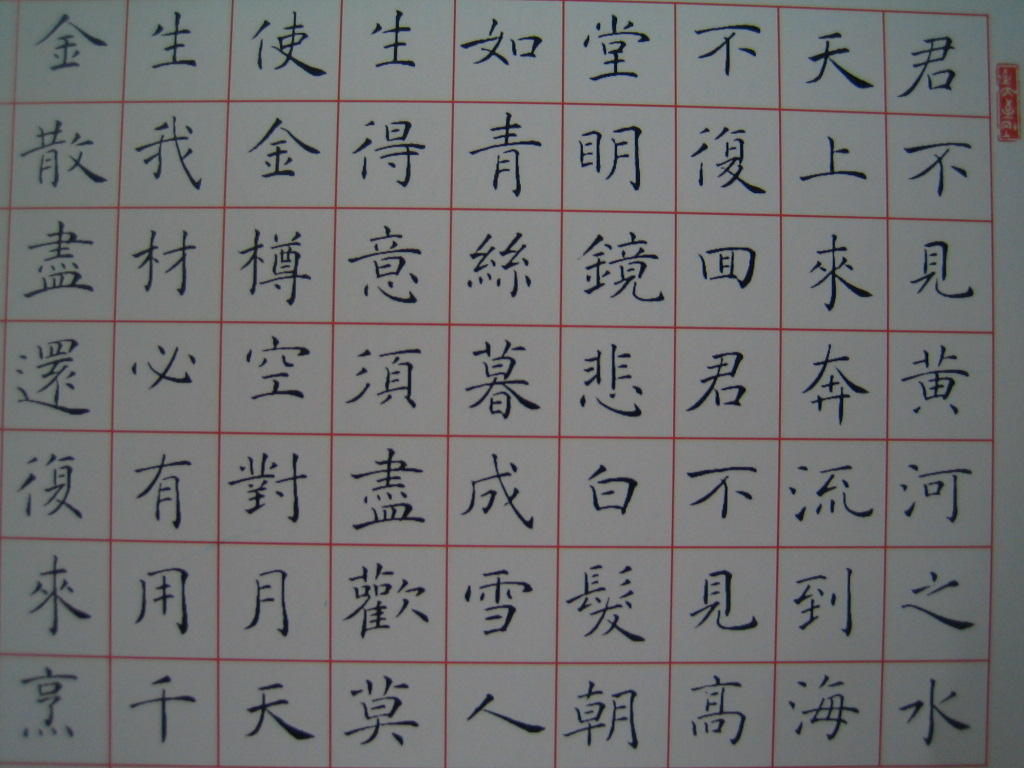 君不見黃河之水
天上來奔流到海
不復回君不見高
堂明鏡悲白髮朝
如青絲暮成雪人
生得意須盡歡莫
使金樽空對月天
生我材必有用千
金散盡還復來烹